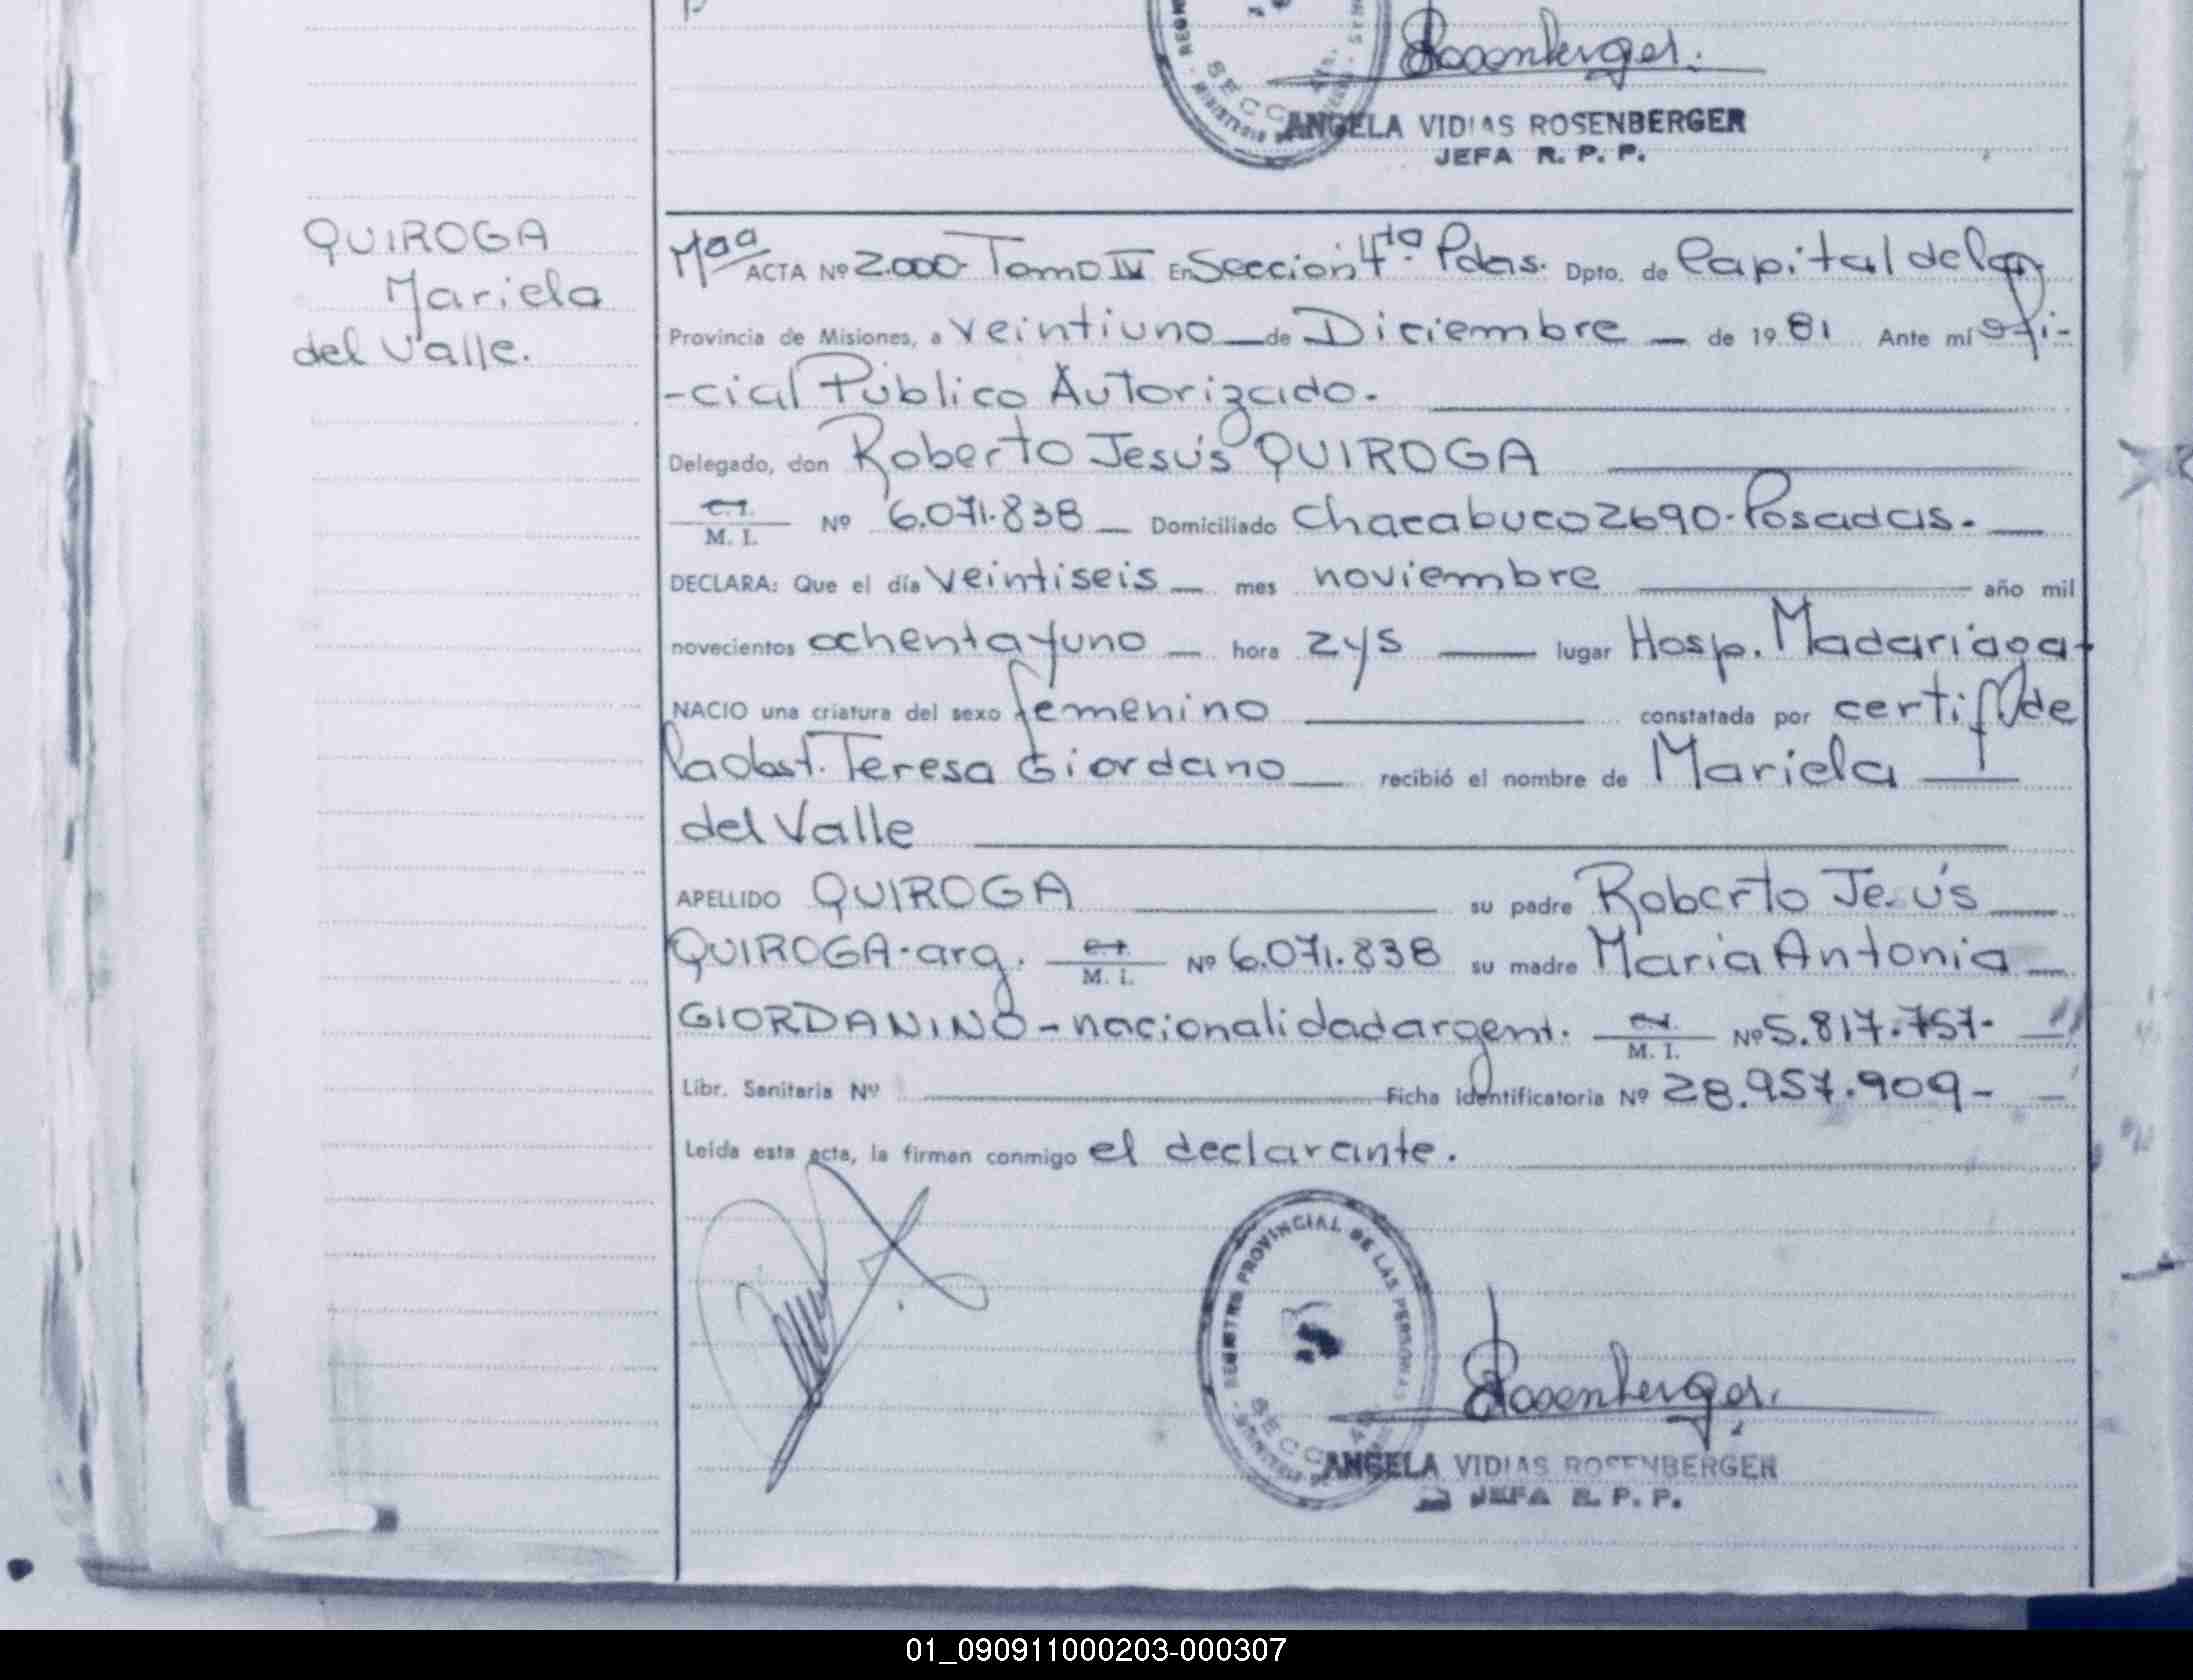 Rosenberger.
SECC 4ta.
ANGELA VIDIAS ROSENBERGER
JEFA R. P. P.
QUIROGA
Mariela
del Valle.
ACTA Nº 2.000- Tomo IV En Sección 4ta. Pdas. Dpto. de Capital de la
Provincia de Misiones, a veintiuno de Diciembre de 1981 Ante mí Ofi-
-cial Público Autorizado.
Delegado, don Roberto Jesús QUIROGA
C.I.
M. I. Nº 6.071.838 Domiciliado Chacabuco 2690-Posadas.
DECLARA: Que el día veintiseis mes noviembre año mil
novecientos ochenta y uno hora 2 y 5 lugar Hosp. Madariaga-
NACIO una criatura del sexo femenino constatada por certif. de
la Obst. Teresa Giordano recibió el nombre de Mariela
del Valle
APELLIDO QUIROGA su padre Roberto Jesús
QUIROGA-arg. C.I.
M. I. Nº 6.071.838 su madre Maria Antonia
GIORDANINO-nacionalidad argent. C.I.
M. I. Nº 5.817.757-
Libr. Sanitaria Nº Ficha identificatoria Nº 28.957.909-
Leída esta acta, la firman conmigo el declarante.
REGISTRO PROVINCIAL DE LAS PERSONAS
SECC 4ta
Rosenberger.
ANGELA VIDIAS ROSENBERGER
JEFA R. P. P.
01_090911000203-000307